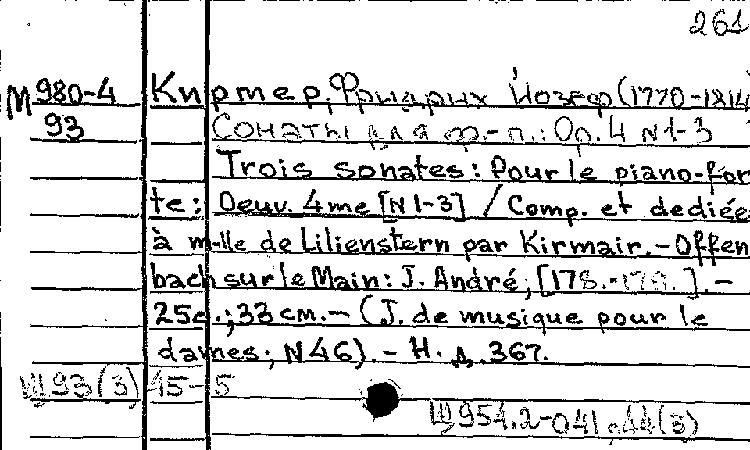 261
М 980-4 Кирмер, Фридрих Йозеф (1770-1814
93 Сонаты для ф.-п.: Op. 4 N 1-3
Trois sonates: Pour le piano-for
te; Oeuv. 4me [N 1-3] / Comp. et dediée
à m-lle de Lilienstern par Kirmair. - Offen
bach sur le Main: J. André, [178.-179. ]. -
25c.; 33 cm. - (J. de musique pour le
dames; N 46). - Н. д. 367.
Ш 93(3) 45-5
Ш 954.2-041.44(3)